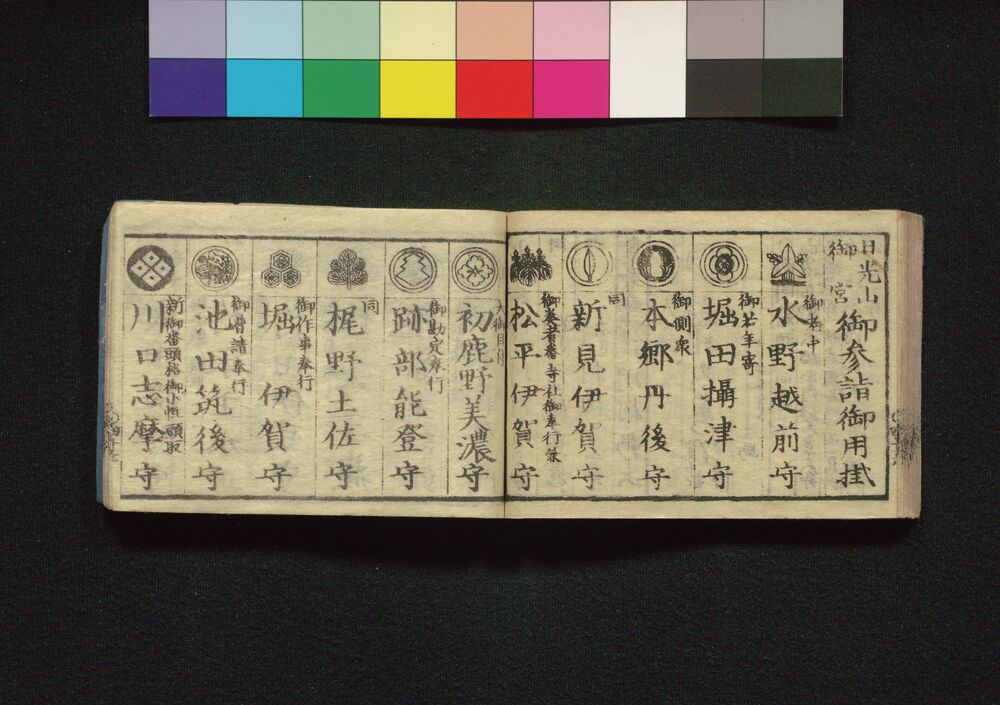 日光山
御宮
御参詣御用掛
御老中
水野越前守
御若年寄
堀田攝津守
御側衆
本郷丹後守
同
新見伊賀守
御奏者番寺社御奉行兼
松平伊賀守
大御目付
初鹿野美濃守
御勘定奉行
跡部能登守
同
梶野土佐守
御作事奉行
堀伊賀守
御普請奉行
池田筑後守
新御番頭格御小性頭取
川口志摩守